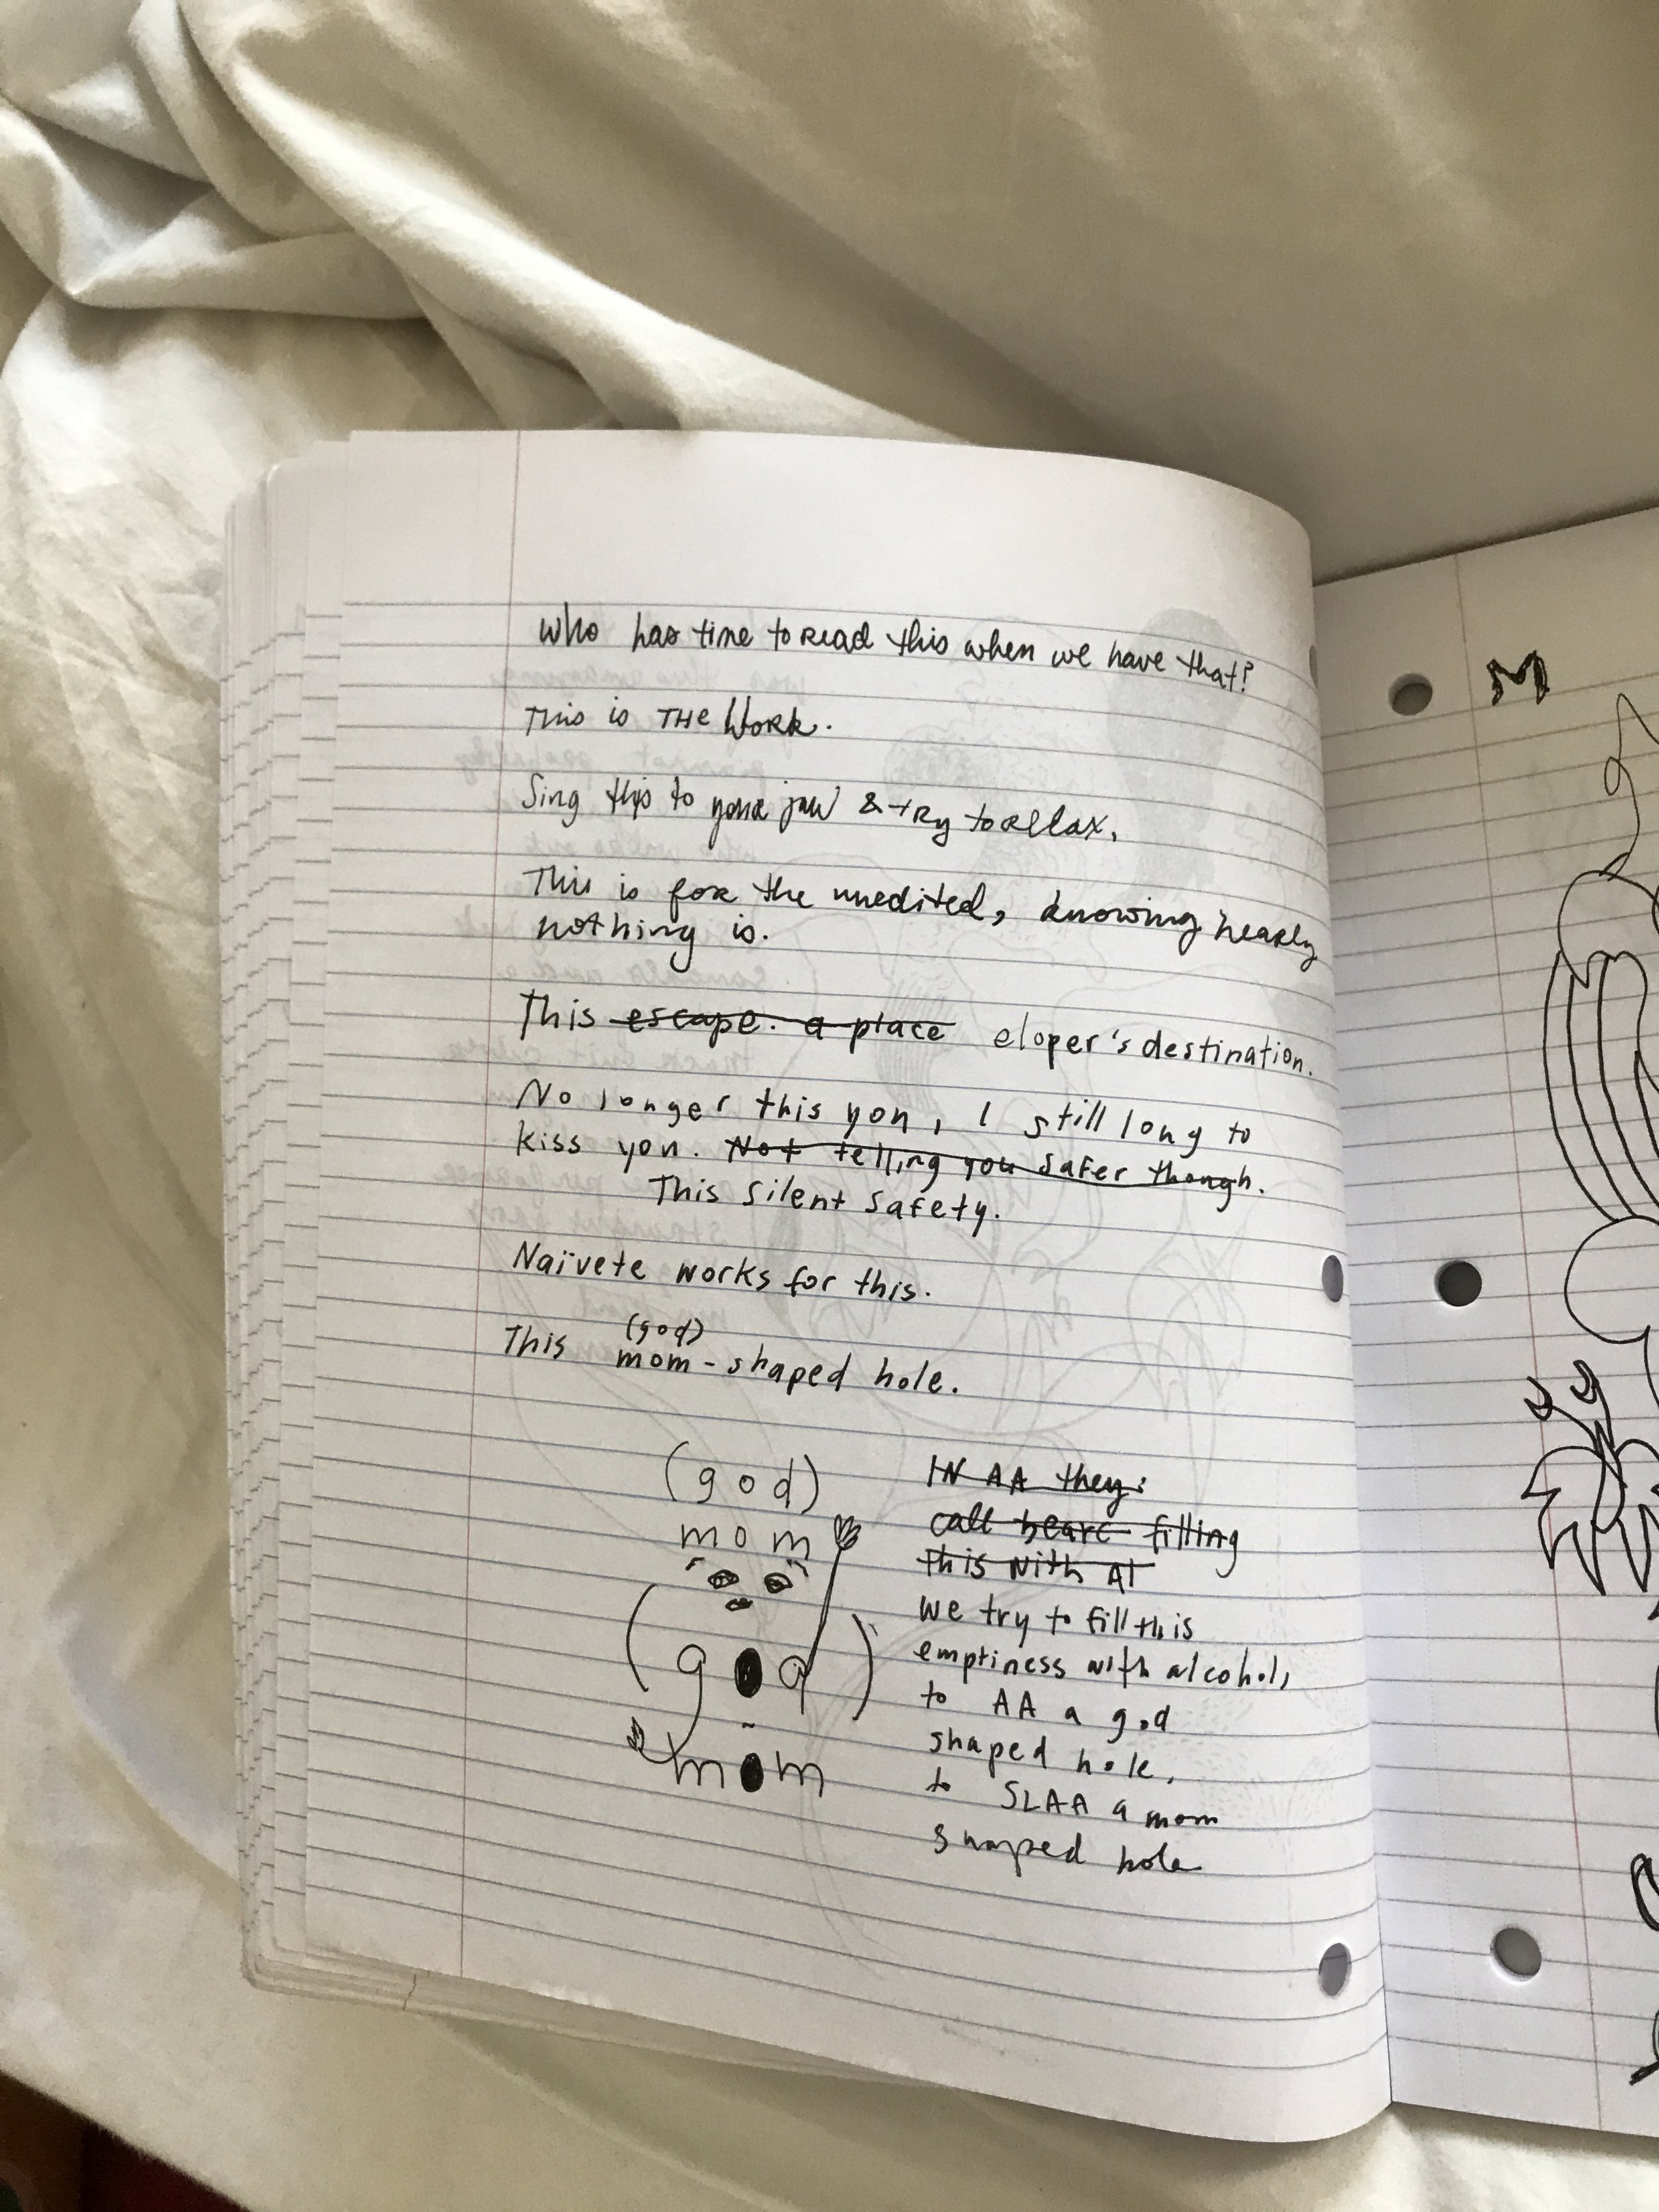 Who has time to read this when we have that?
This is THE Work.
Sing this to your jaw & try to relax.
This is for the unedited, knowing nearly
nothing is.
This escape. a place eloper's destination.
No longer this you, I still long to
kiss you. Not telling you safer though.
This silent safety.
Naïvete works for this.
(god)
This mom-shaped hole.
(god)
mom
(god)
mom
IN AA they:
call filling
this with AT
we try to fill this
emptiness with alcohol,
to AA a god
shaped hole,
to SLAA a mom
shaped hole
M